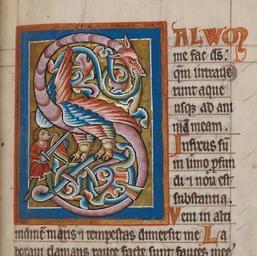 SALVVM
me fac ds̄.
qm̄ intraue
runt aque
usq; ad ani
mā meam.
Infixus sū
in limo pfun
di & non est
substantia.
Veni in alti
tudinem maris & tempestas dimersit me. La
boraui clamans rauce facte sunt fauces mee